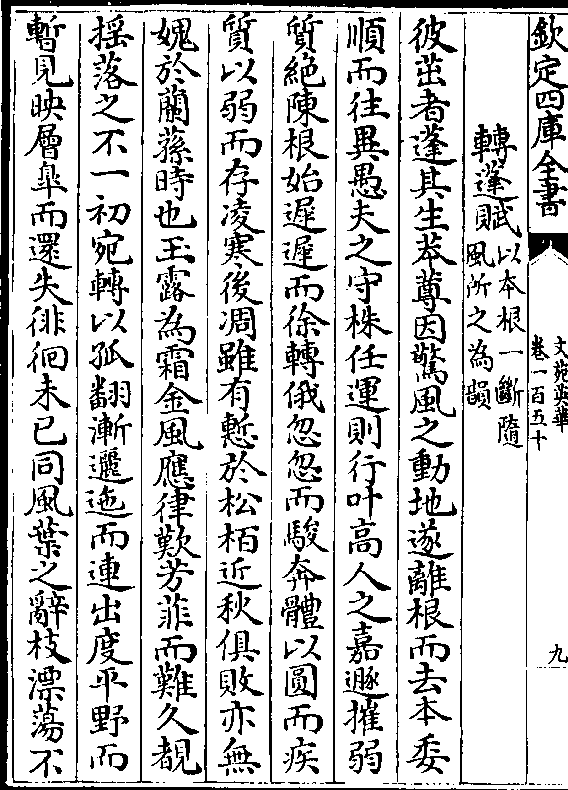 欽定四庫全書
文苑英華
卷一百五十
九
轉蓬賦以本根一斷隨
風所之為韻
彼茁者蓬其生苯䔿因驚風之動地遂離根而去本委
順而往異愚夫之守株任運則行叶高人之嘉遯摧弱
質絶陳根始遲遲而徐轉俄忽忽而駿奔體以圓而疾
質以弱而存凌寒後凋雖有慙於松栢近秋俱敗亦無
媿於蘭蓀時也玉露為霜金風應律歎芳菲而難久覩
揺落之不一初宛轉以孤翻漸邐迤而連出度平野而
暫見映層臯而還失徘徊未已同風葉之辭枝漂蕩不